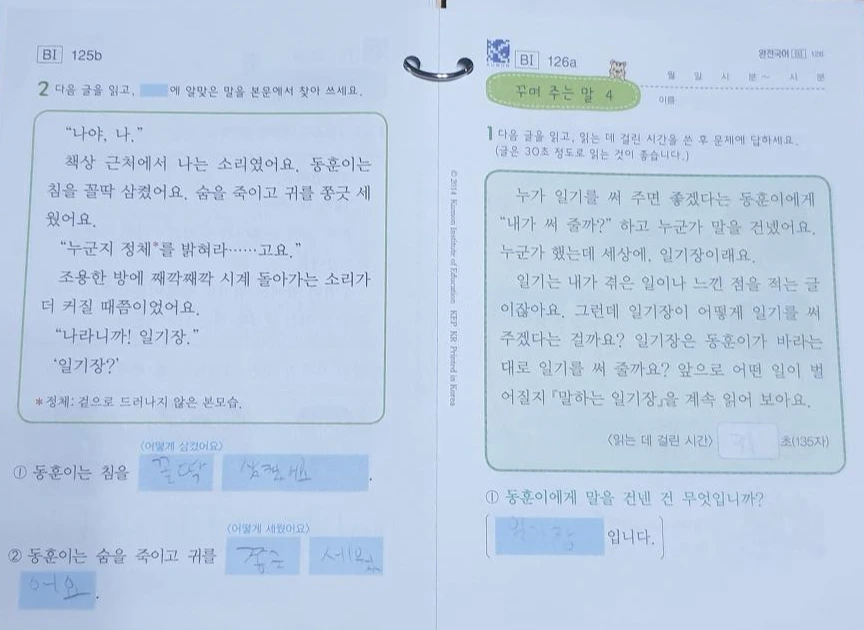 BI 125b
2 다음 글을 읽고, 에 알맞은 말을 본문에서 찾아 쓰세요.
“나야, 나.”
책상 근처에서 나는 소리였어요. 동훈이는
침을 꼴딱 삼켰어요. 숨을 죽이고 귀를 쫑긋 세
웠어요.
“누군지 정체*를 밝혀라……고요.”
조용한 방에 째깍째깍 시계 돌아가는 소리가
더 커질 때쯤이었어요.
“나라니까! 일기장.”
‘일기장?’
*정체: 겉으로 드러나지 않은 본모습.
<어떻게 삼켰어요>
① 동훈이는 침을 꼴딱 .
<어떻게 세웠어요>
② 동훈이는 숨을 죽이고 귀를 세워
어요.
© 2014 Kumon Institute of Education KEP KR Printed in Korea
BI 126a
완전국어 BI 126
월 일 시 분~ 시 분
꾸며 주는 말 4
이름
1 다음 글을 읽고, 읽는 데 걸린 시간을 쓴 후 문제에 답하세요.
(글은 30초 정도로 읽는 것이 좋습니다.)
누가 일기를 써 주면 좋겠다는 동훈이에게
“내가 써 줄까?” 하고 누군가 말을 건넸어요.
누군가 했는데 세상에, 일기장이래요.
일기는 내가 겪은 일이나 느낀 점을 적는 글
이잖아요. 그런데 일기장이 어떻게 일기를 써
주겠다는 걸까요? 일기장은 동훈이가 바라는
대로 일기를 써 줄까요? 앞으로 어떤 일이 벌
어질지 『말하는 일기장』을 계속 읽어 보아요.
<읽는 데 걸린 시간> 초(135자)
① 동훈이에게 말을 건넨 건 무엇입니까?
[일기장 입니다.]